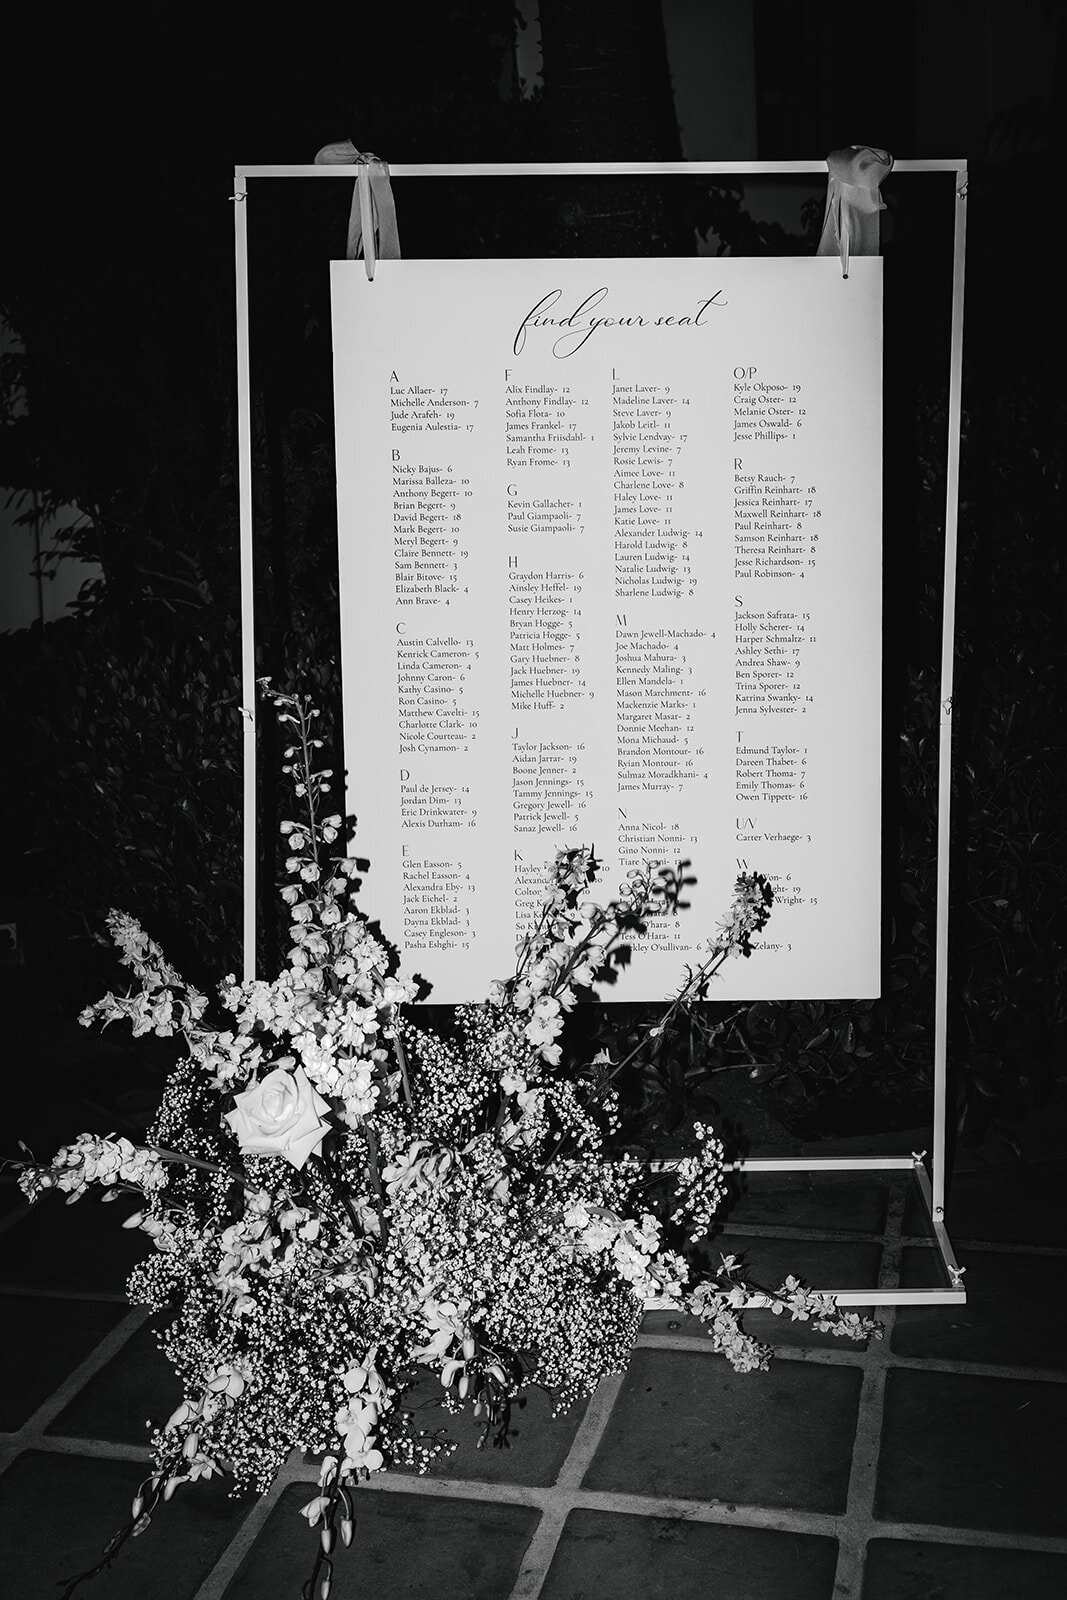 find your seat
A
Luc Allaer- 17
Michelle Anderson- 7
Jude Arafeh- 19
Eugenia Aulestia- 17
B
Nicky Bajus- 6
Marissa Balleza- 10
Anthony Begert- 10
Brian Begert- 9
David Begert- 18
Mark Begert- 10
Meryl Begert- 9
Claire Bennett- 19
Sam Bennett- 3
Blair Bitove- 15
Elizabeth Black- 4
Ann Brave- 4
C
Austin Calvello- 13
Kenrick Cameron- 5
Linda Cameron- 4
Johnny Caron- 6
Kathy Casino- 5
Ron Casino- 5
Matthew Cavelti- 15
Charlotte Clark- 10
Nicole Courteau- 2
Josh Cynamon- 2
D
Paul de Jersey- 14
Jordan Dim- 13
Eric Drinkwater- 9
Alexis Durham- 16
E
Glen Easson- 5
Rachel Easson- 4
Alexandra Eby- 13
Jack Eichel- 2
Aaron Ekblad- 3
Dayna Ekblad- 3
Casey Engleson- 3
Pasha Eshghi- 15
F
Alix Findlay- 12
Anthony Findlay- 12
Sofia Flota- 10
James Frankel- 17
Samantha Friisdahl- 1
Leah Frome- 13
Ryan Frome- 13
G
Kevin Gallacher- 1
Paul Giampaoli- 7
Susie Giampaoli- 7
H
Graydon Harris- 6
Ainsley Heffel- 19
Casey Heikes- 1
Henry Herzog- 14
Bryan Hogge- 5
Patricia Hogge- 5
Matt Holmes- 7
Gary Huebner- 8
Jack Huebner- 19
James Huebner- 14
Michelle Huebner- 9
Mike Huff- 2
J
Taylor Jackson- 16
Aidan Jarrar- 19
Boone Jenner- 2
Jason Jennings- 15
Tammy Jennings- 15
Gregory Jewell- 16
Patrick Jewell- 5
Sanaz Jewell- 16
K
Hayley 10
Colton
Greg
Lisa 9
So
L
Janet Laver- 9
Madeline Laver- 14
Steve Laver- 9
Jakob Leitl- 11
Sylvie Lendvay- 17
Jeremy Levine- 7
Rosie Lewis- 7
Aimee Love- 11
Charlene Love- 8
Haley Love- 11
James Love- 11
Katie Love- 11
Alexander Ludwig- 14
Harold Ludwig- 8
Lauren Ludwig- 14
Natalie Ludwig- 13
Nicholas Ludwig- 19
Sharlene Ludwig- 8
M
Dawn Jewell-Machado- 4
Joe Machado- 4
Joshua Mahura- 3
Kennedy Maling- 3
Ellen Mandela- 1
Mason Marchment- 16
Mackenzie Marks- 1
Margaret Masar- 2
Donnie Meehan- 12
Mona Michaud- 5
Brandon Montour- 16
Ryian Montour- 16
Sulmaz Moradkhani- 4
James Murray- 7
N
Anna Nicol- 18
Christian Nonni- 13
Gino Nonni- 12
Tiare Nonni- 13
O'hara- 8
Tess O'Hara- 11
O'sullivan- 6
O/P
Kyle Okposo- 19
Craig Oster- 12
Melanie Oster- 12
James Oswald- 6
Jesse Phillips- 1
R
Betsy Rauch- 7
Griffin Reinhart- 18
Jessica Reinhart- 17
Maxwell Reinhart- 18
Paul Reinhart- 8
Samson Reinhart- 18
Theresa Reinhart- 8
Jesse Richardson- 15
Paul Robinson- 4
S
Jackson Safrata- 15
Holly Scherer- 14
Harper Schmaltz- 11
Ashley Sethi- 17
Andrea Shaw- 9
Ben Sporer- 12
Trina Sporer- 12
Katrina Swanky- 14
Jenna Sylvester- 2
T
Edmund Taylor- 1
Dareen Thabet- 6
Robert Thoma- 7
Emily Thomas- 6
Owen Tippett- 16
U/V
Carter Verhaege- 3
W
Won- 6
19
Wright- 15
Zelany- 3